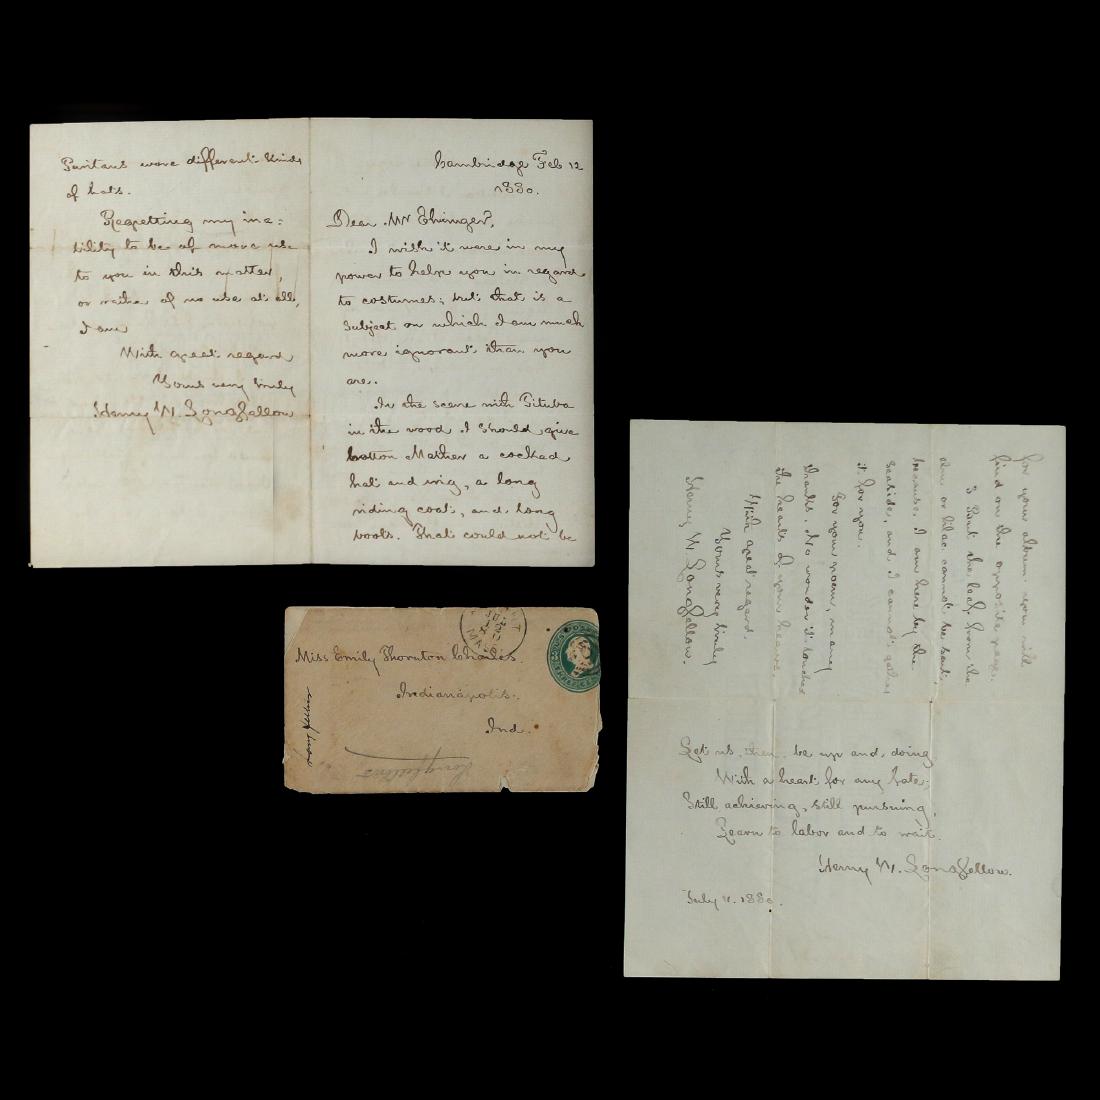 Cambridge Feb 12
1880.
Dear Mr Ehninger,
I wish it were in my
power to help you in regard
to costumes; but that is a
subject on which I am much
more ignorant than you
are.
In the scene with Tituba
in the wood I should give
Cotton Mather a cocked
hat and wig, a long
riding coat, and long
boots. That could not be
Puritans wore different kinds
of hats.
Regretting my ina-
bility to be of more use
to you in this matter,
or rather of no use at all,
I am
With great regard
Yours very truly
Henry W. Longfellow
Miss Emily Thornton Charles
Indianapolis.
Ind.
Longfellow
for your album you will
find on the opposite page.
the leaf from the
elm or lilac cannot be sent,
because I am here by the
seaside, and I cannot gather
it for you.
For your poem, many
thanks. No wonder it touched
the hearts of your hearers.
With great regard
Yours very truly
Henry W. Longfellow.
Let us, then, be up and doing
With a heart for any fate;
Still achieving, still pursuing,
Learn to labor and to wait.
Henry W. Longfellow.
July 1880.